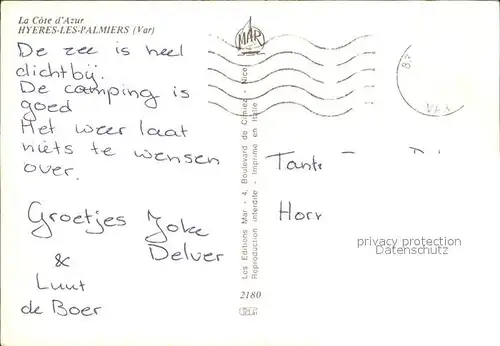 La Côte d'Azur
HYERES-LES-PALMIERS (Var)
De zee is heel
dichtbij.
De camping is
goed
Het weer laat
niets te wensen
over.
Groetjes Joke
Delver
&
Luut
de Boer
MAR
Les Editions Mar - 4, Boulevard de Cimiez - Nice
Reproduction interdite - Imprimé en Italie
2180
VAR
Tante
Horr
privacy protection
Datenschutz